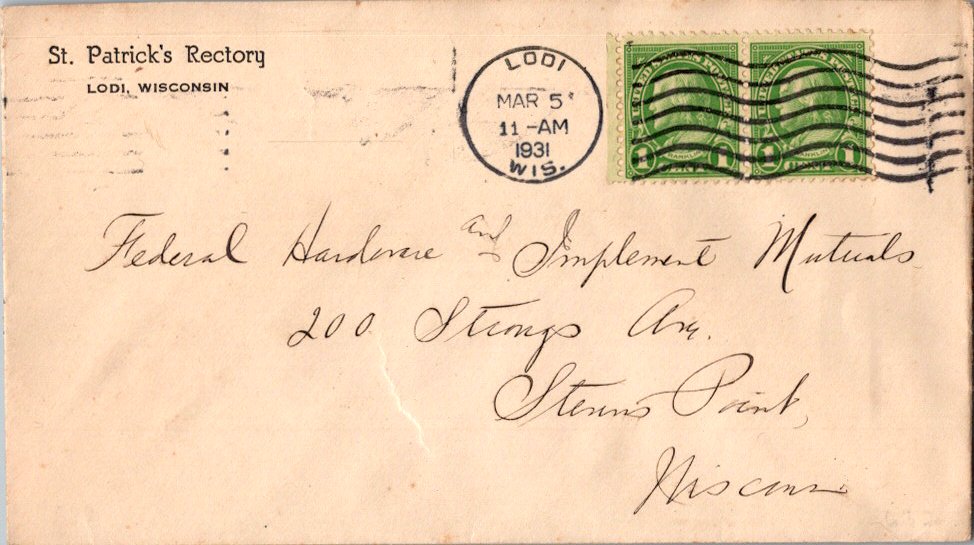 St. Patrick's Rectory
LODI, WISCONSIN
LODI
MAR 5
11-AM
1931
WIS.
1 FRANKLIN 1
1 1
Federal Hardware and Implement Mutuals
200 Strongs Ave.
Stevens Point,
Wisconsin